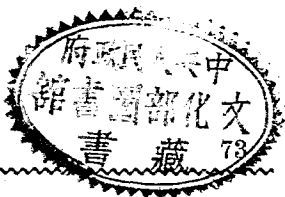 中央人民政府
文化部圖書館
藏書
73